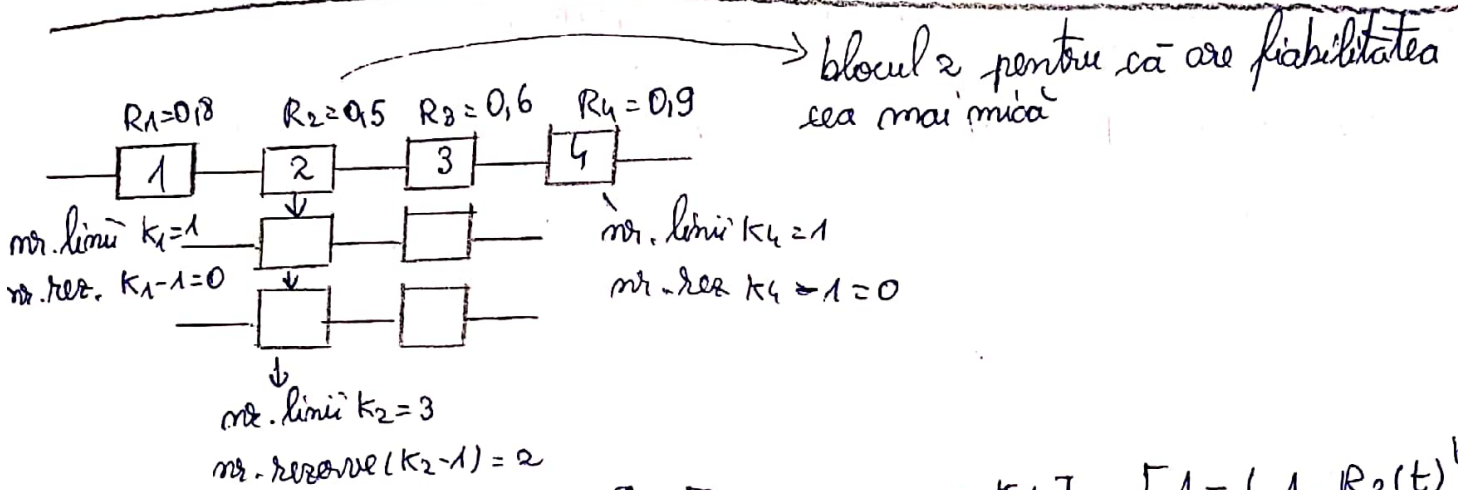 blocul 2 pentru că are fiabilitatea
cea mai mică
R1=0,8 R2=0,5 R3=0,6 R4=0,9
1 2 3 4
nr. linii K1=1
nr. rez. K1-1=0
nr. linii K4=1
nr. rez K4-1=0
nr. linii K2=3
nr. rezerve (K2-1)=2
[1-(1-R2(t)